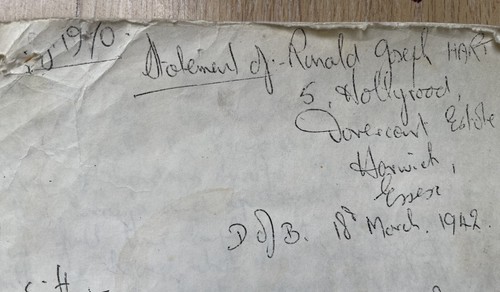 1970.
Statement of:- Ronald Joseph HART
5, Hollywood,
Dovercourt Estate
Harwich,
Essex
D of B. 18th March. 1942.